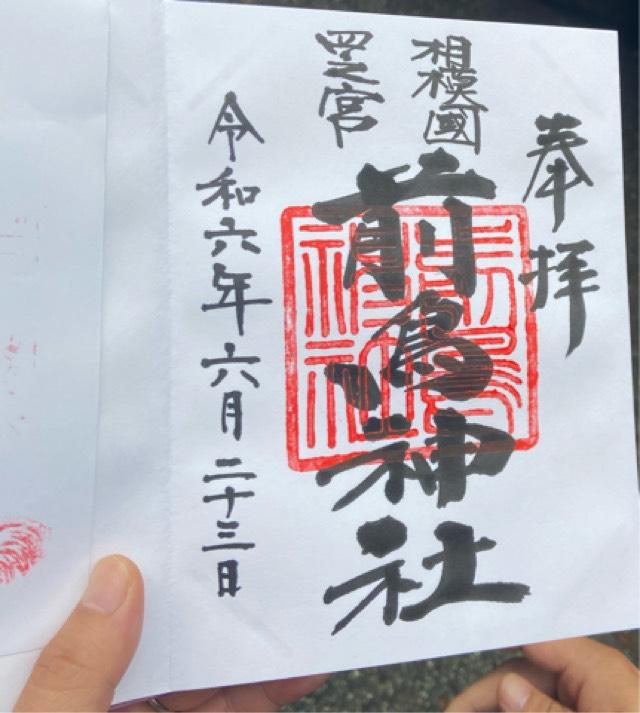 奉拝
相模國
四之宮
前鳥神社
令和六年六月二十三日